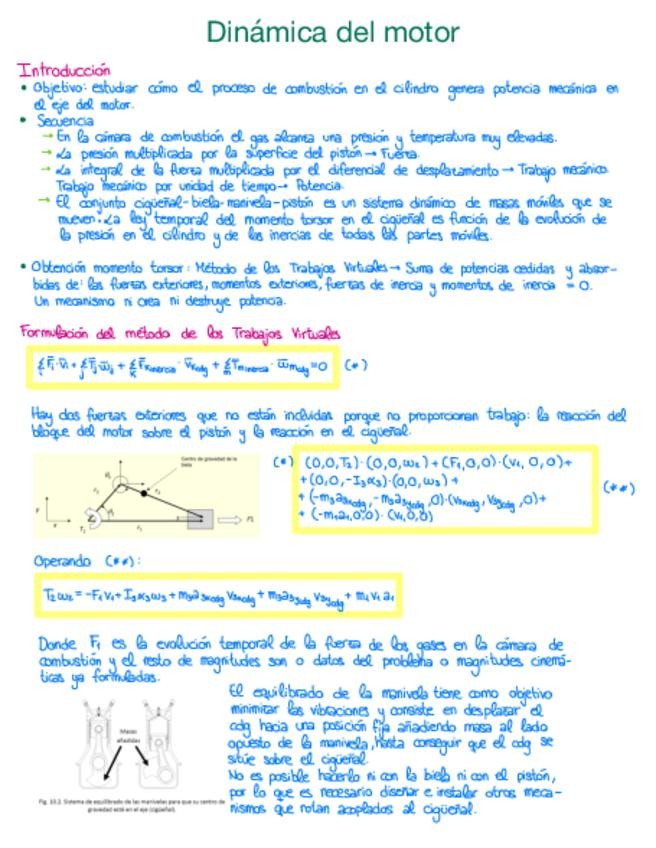 Dinámica del motor
Introducción
• Objetivo: estudiar cómo el proceso de combustión en el cilindro genera potencia mecánica en
el eje del motor.
• Secuencia
→ En la cámara de combustión el gas alcanza una presión y temperatura muy elevadas.
→ La presión multiplicada por la superficie del pistón → Fuerza.
→ La integral de la fuerza multiplicada por el diferencial de desplazamiento → Trabajo mecánico.
Trabajo mecánico por unidad de tiempo → Potencia.
→ El conjunto cigüeñal-biela-manivela-pistón es un sistema dinámico de masas móviles que se
mueven. La ley temporal del momento torsor en el cigüeñal es función de la evolución de
la presión en el cilindro y de las inercias de todas las partes móviles.
• Obtención momento torsor: Método de los Trabajos Virtuales → Suma de potencias cedidas y absor-
bidas de: las fuerzas exteriores, momentos exteriores, fuerzas de inercia y momentos de inercia = 0.
Un mecanismo ni crea ni destruye potencia.
Formulación del método de los Trabajos Virtuales
Σ F̄i·v̄i + Σ T̄j ω̄j + Σ F̄k inercia · v̄k cdg + Σ T̄m inercia · ω̄m cdg = 0 (*)
Hay dos fuerzas exteriores que no están incluidas porque no proporcionan trabajo: la reacción del
bloque del motor sobre el pistón y la reacción en el cigüeñal.
Centro de gravedad de la
biela
(*) (0,0,T₂)·(0,0,ω₂) + (F₁,0,0)·(v₁,0,0)+
+ (0,0,-I₃α₃)·(0,0,ω₃) +
+ (-m₃a₃xcdg, -m₃a₃ycdg, 0)·(v₃xcdg, v₃ycdg, 0)+
+ (-m₁a₁,0,0)·(v₁,0,0)
(**)
Operando (**):
T₂ω₂ = -F₁v₁ + I₃α₃ω₃ + m₃a₃xcdg v₃xcdg + m₃a₃ycdg v₃ycdg + m₁v₁a₁
Donde F₁ es la evolución temporal de la fuerza de los gases en la cámara de
combustión y el resto de magnitudes son o datos del problema o magnitudes cinemá-
ticas ya formuladas.
El equilibrado de la manivela tiene como objetivo
minimizar las vibraciones y consiste en desplazar el
cdg hacia una posición fija añadiendo masa al lado
opuesto de la manivela, hasta conseguir que el cdg se
sitúe sobre el cigüeñal.
No es posible hacerlo ni con la biela ni con el pistón,
por lo que es necesario diseñar e instalar otros meca-
nismos que rotan acoplados al cigüeñal.
Masas
añadidas
Fig. 10.2. Sistema de equilibrado de las manivelas para que su centro de
gravedad esté en el eje (cigüeñal).